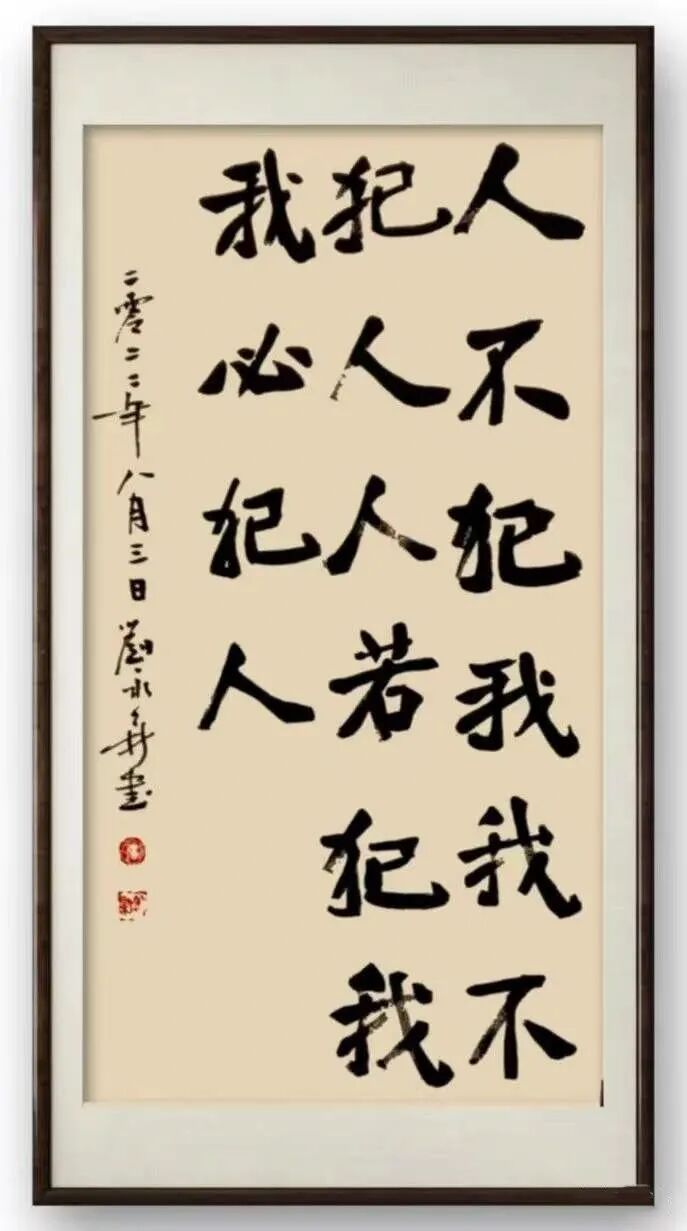 人不犯我我不
犯人人若犯我
我必犯人
二零二二年八月三日劉永
書